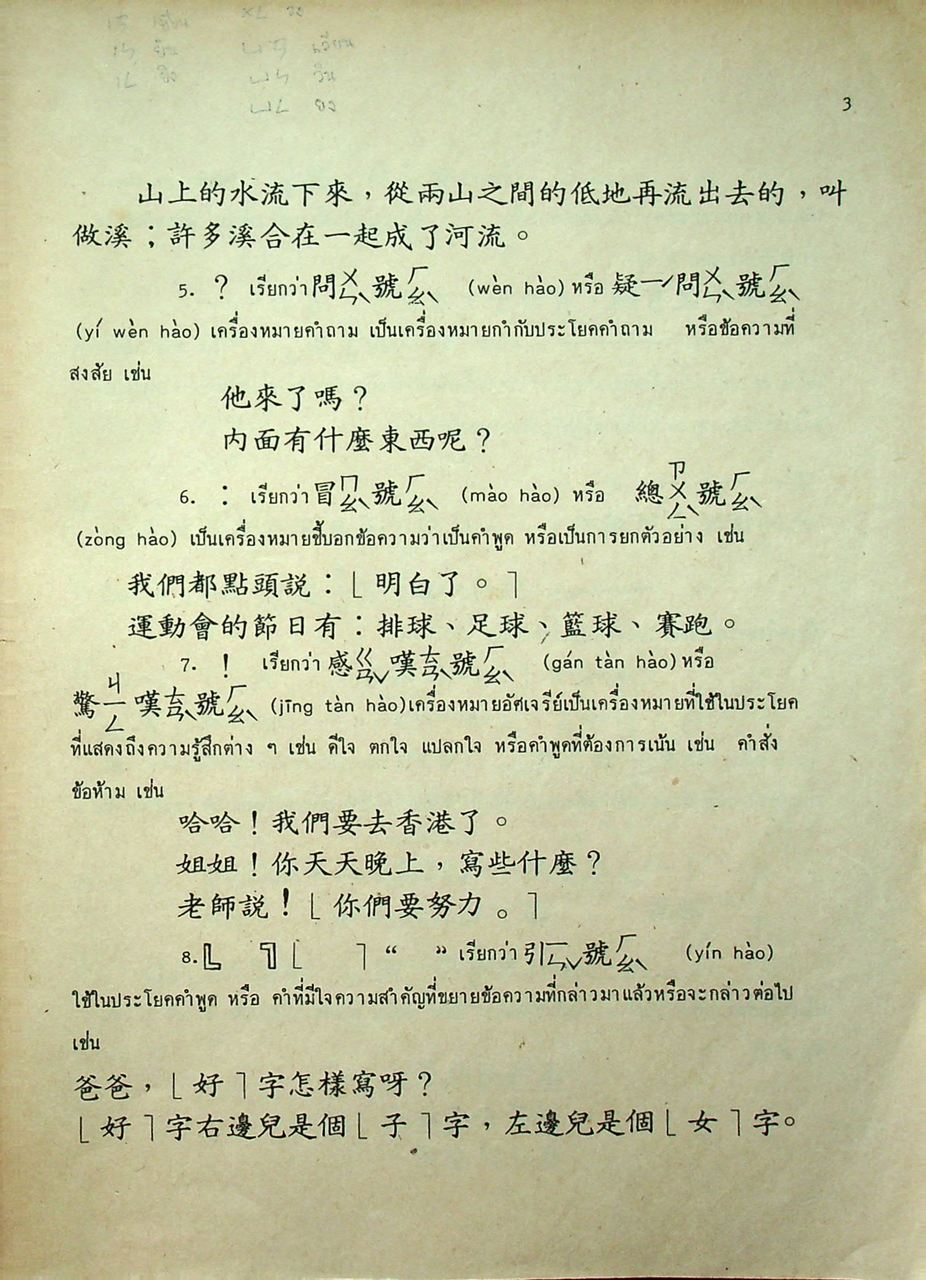 3
山上的水流下來，從兩山之間的低地再流出去的，叫
做溪；許多溪合在一起成了河流。
5. ？ เรียกว่า問ㄨㄣˋ號ㄏㄠˋ (wèn hào) หรือ 疑ㄧˊ問ㄨㄣˋ號ㄏㄠˋ
(yí wèn hào) เครื่องหมายคำถาม เป็นเครื่องหมายกำกับประโยคคำถาม หรือข้อความที่
สงสัย เช่น
他來了嗎？
内面有什麼東西呢？
6. ： เรียกว่า冒ㄇㄠˋ號ㄏㄠˋ (mào hào) หรือ 總ㄗㄨㄥˋ號ㄏㄠˋ
(zòng hào) เป็นเครื่องหมายชี้บอกข้อความว่าเป็นคำพูด หรือเป็นการยกตัวอย่าง เช่น
我們都點頭説：⌊ 明白了。⌉
運動會的節日有：排球、足球、籃球、賽跑。
7. ！ เรียกว่า 感ㄍㄢˇ嘆ㄊㄢˋ號ㄏㄠˋ (gán tàn hào)หรือ
驚ㄐㄧㄥ嘆ㄊㄢˋ號ㄏㄠˋ (jīng tàn hào)เครื่องหมายอัศเจรีย์เป็นเครื่องหมายที่ใช้ในประโยค
ที่แสดงถึงความรู้สึกต่าง ๆ เช่น ดีใจ ตกใจ แปลกใจ หรือคำพูดที่ต้องการเน้น เช่น คำสั่ง
ข้อห้าม เช่น
哈哈！我們要去香港了。
姐姐！你天天晚上，寫些什麼？
老師説！⌊ 你們要努力。⌉
8.『 』⌊ ⌉ “ ” เรียกว่า 引ㄧㄣˇ號ㄏㄠˋ (yín hào)
ใช้ในประโยคคำพูด หรือ คำที่มีใจความสำคัญที่ขยายข้อความที่กล่าวมาแล้วหรือจะกล่าวต่อไป
เช่น
爸爸，⌊ 好 ⌉字怎樣寫呀？
⌊ 好 ⌉字右邊兒是個⌊ 子 ⌉字，左邊兒是個⌊ 女 ⌉字。